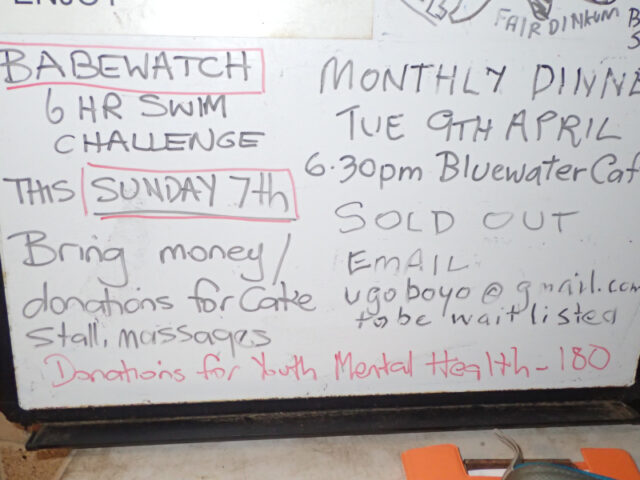 FAIR DINKUM
BABEWATCH
6 HR SWIM
CHALLENGE
THIS SUNDAY 7th
Bring money/
donations for Cake
Stall, massages
MONTHLY DINNE
TUE 9TH APRIL
6.30pm Bluewater Caf
SOLD OUT
EMAIL
ugoboyo@gmail.com
to be waitlisted
Donations for Youth Mental Health - 180